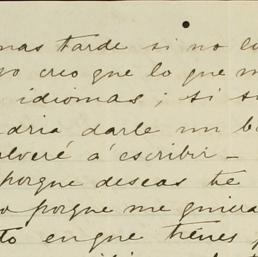 mas tarde si no
yo creo que lo que
idiomas; si
darle un
volveré á escribir —
porque deseas te
porque me quiera
en que tienes